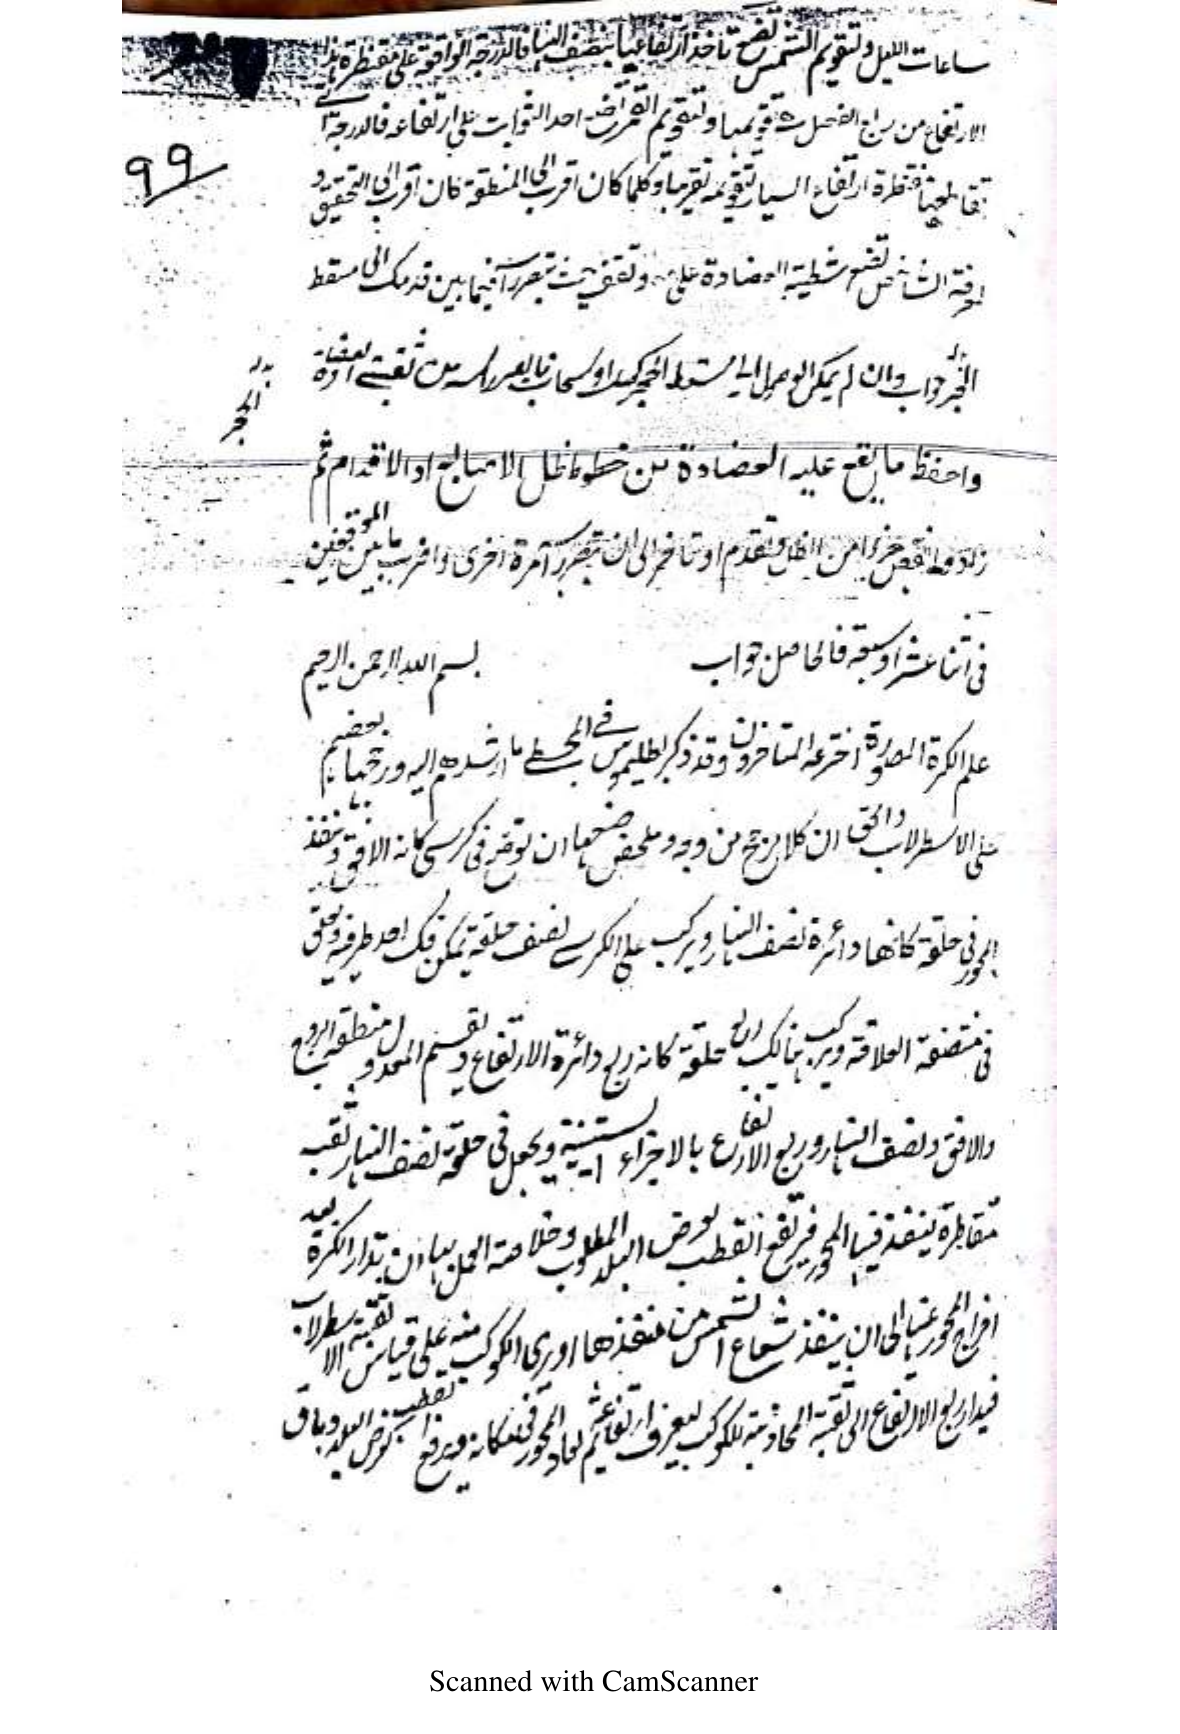 ساعات الليل ولتقويم الشمس تضع تأخذ ارتفاعها بنصف النهار فالدرجة الواقعة على مقنطرة هذا
الارتفاع من ربع الفصل تقويمها ولتقويم القمر خذ احد الثوابت على ارتفاعه فالدرجة التي
99
تقاطع مقنطرة ارتفاع السيار تقويمه تقريبا وكلما كان اقرب الى المنطقة كان اقرب الى التحقيق و
لمعرفة الشاخص تضع شطية العضادة على وتقف بحيث تبصر رأسه فما بين قدمك الى مسقط
الحجر جواب وان لم يمكن الوصول الى مسقط الحجر كجبل او سحاب فابصر رأسه من ثقبتي العضادة
الحجر
واحفظ ما يقع عليه العضادة من خطوط ظل الاصابع او الاقدام ثم
زد او انقص جزءا من الظل وتقدم او تأخر الى ان تبصر رأسه مرة اخرى واضرب ما بين الموقفين
فى اثنا عشر او سبعة فالحاصل جواب
بسم الله الرحمن الرحيم
علم الكرة المصورة اخترعه المتاخرون وقد ذكر بطليموس فى المجسطي ما ارشدهم اليه ورجحها بعضهم
على الاسطرلاب والحق ان كلا يرجح من وجه وملخص صنعها ان توضع فى كرسي كانه الافق وينفذ
المحور فى حلقة كانها دائرة نصف النهار ويركب على الكرسي نصف حلقة يمكن فك احد طرفيه ويعلق
فى منتصفه العلاقة ويركب هنالك ربع حلقة كانه ربع دائرة الارتفاع ويقسم المعدل ومنطقة البروج
والافق ونصف النهار وربع الارتفاع بالاجزاء الستينية ويجعل فى حلقة نصف النهار ثقب
متقاطرة ينفذ فيها المحور فيرتفع القطب لعرض البلد المطلوب وخلاصة العمل بها ان تدار الكرة بعد
افراج المحور عنها الى ان ينفذ شعاع الشمس من منفذها او يرى الكوكب منه على قياس ثقبة الاسطرلاب
فيدار ربع الارتفاع الى ثقبة المحاذية للكوكب ليعرف ارتفاعه ثم يعاد المحور فى مكانه ويرفع القطب كعرض البلد وباق
Scanned with CamScanner